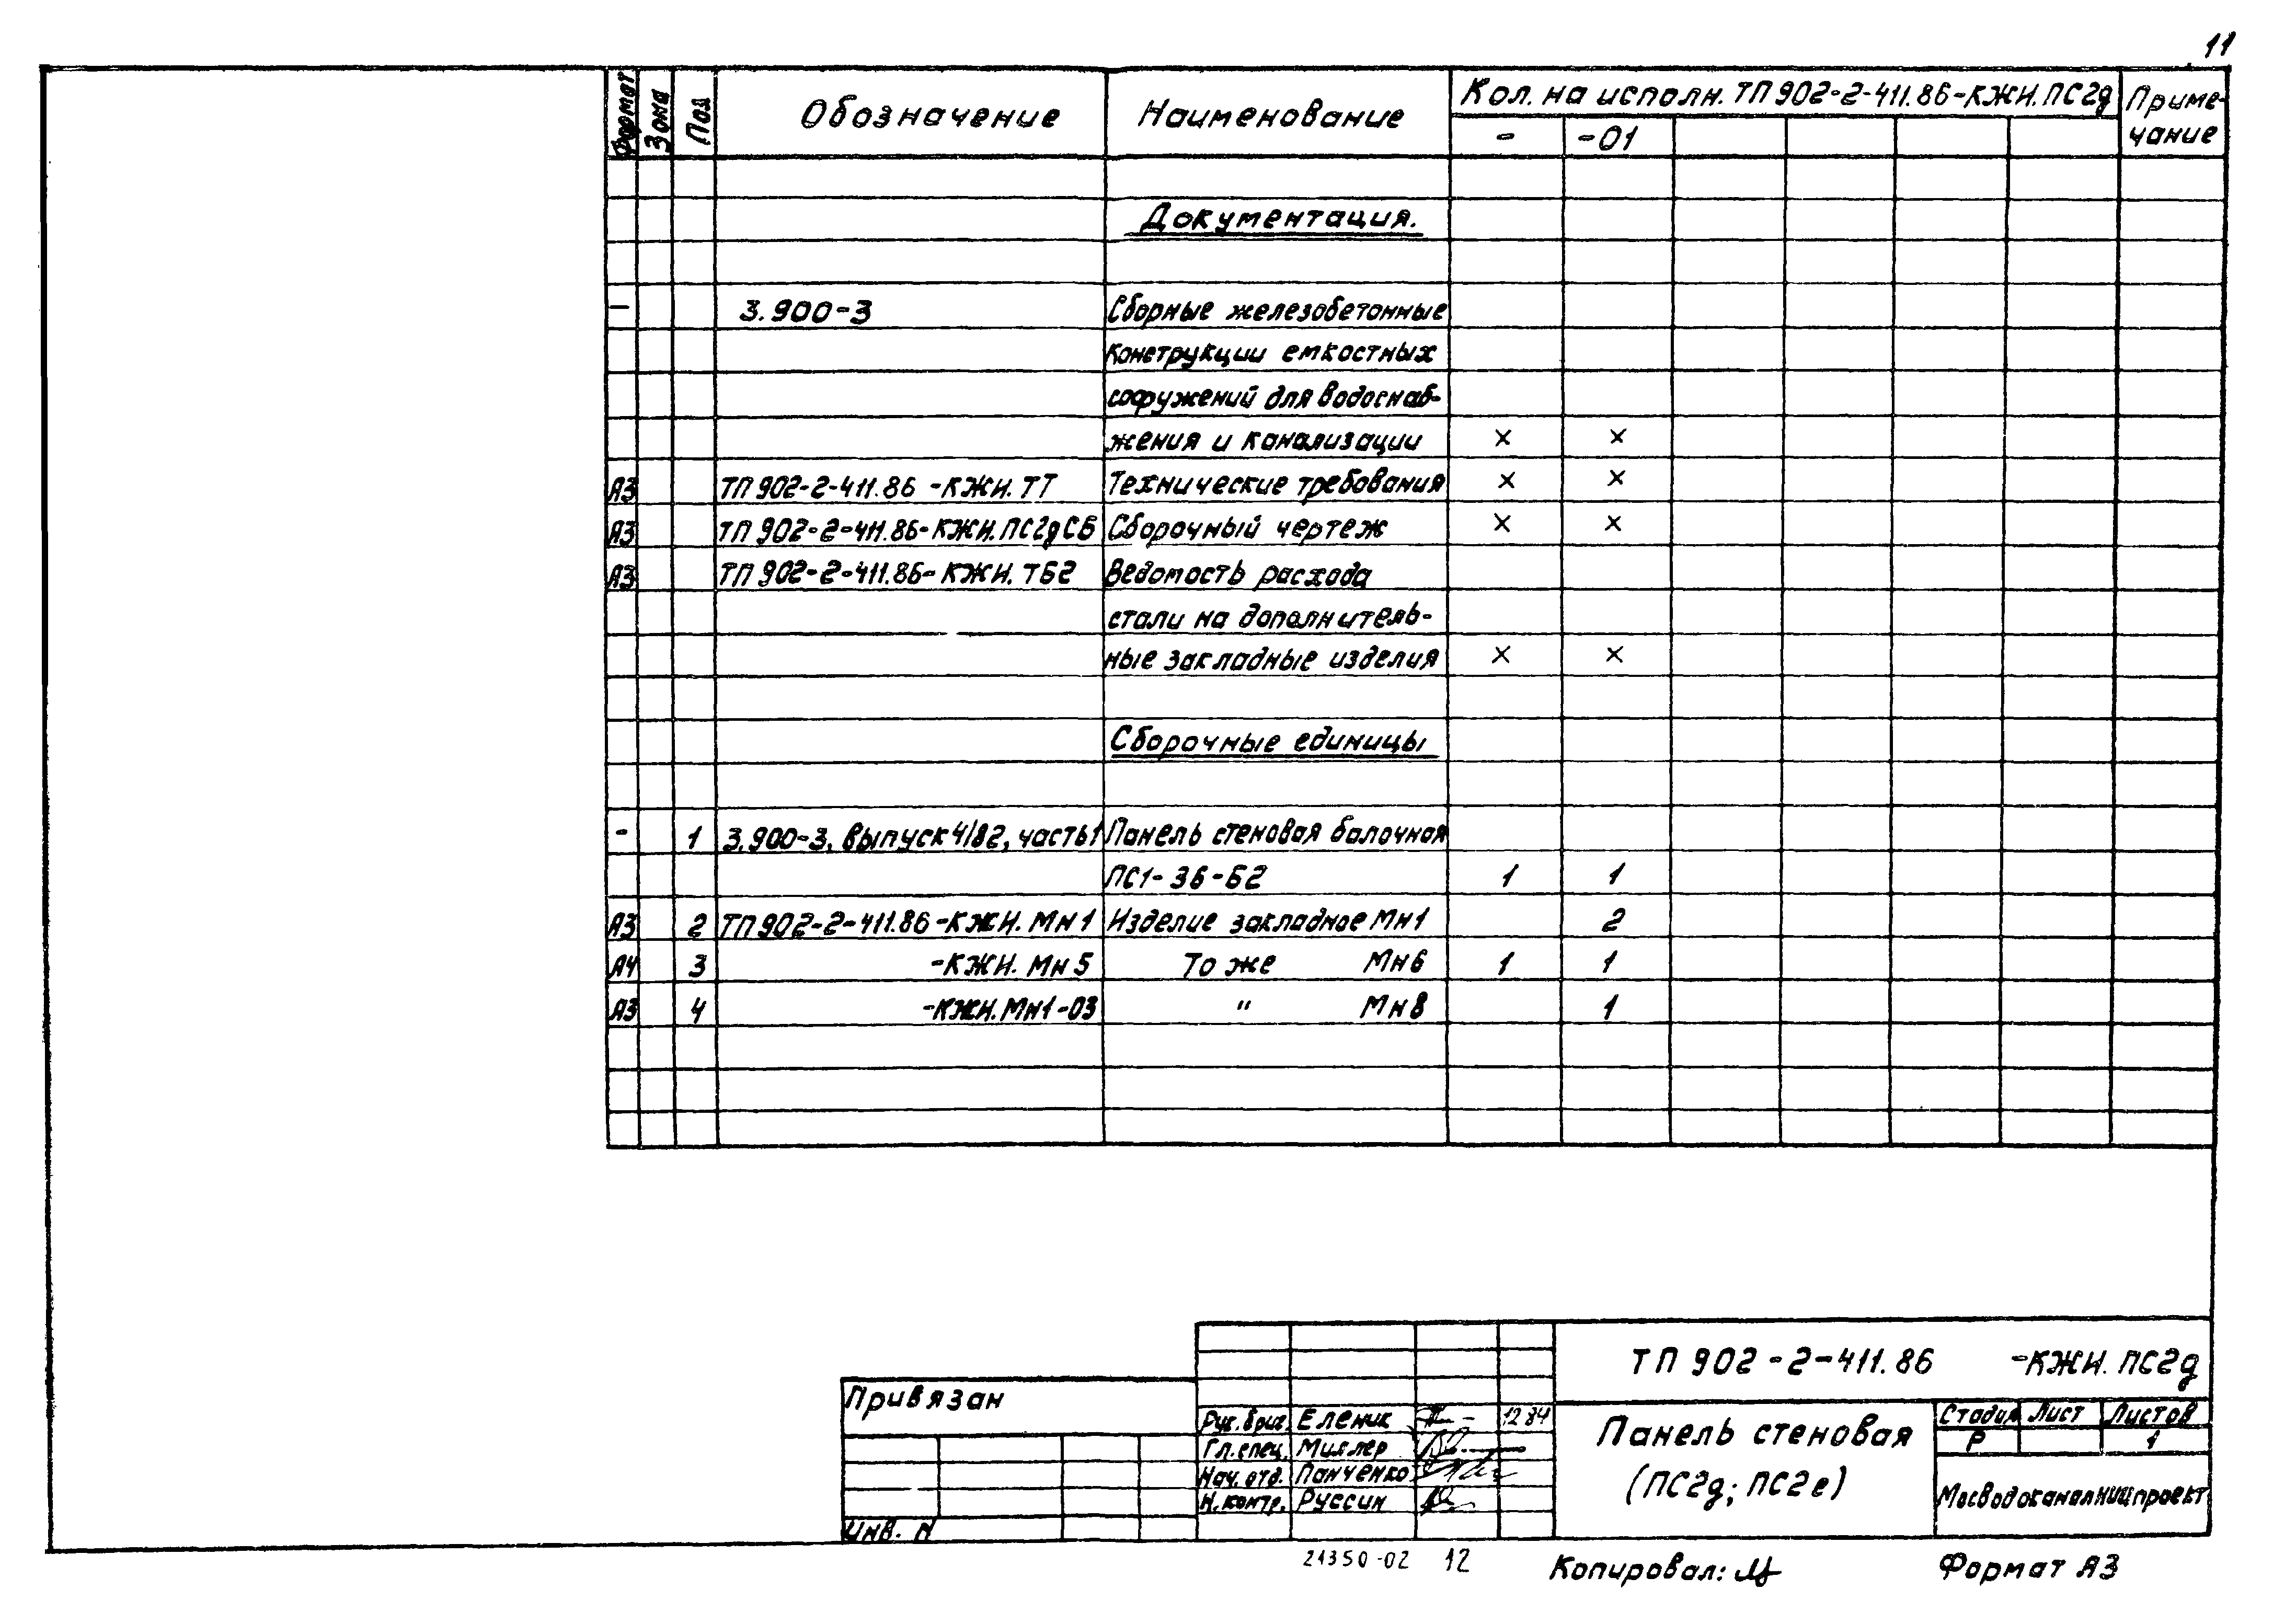 11
Формат Зона Поз Обозначение Наименование Кол. на исполн. ТП 902-2-411.86-КЖИ.ПС2д Приме-
- -01 чание
Документация.
- 3.900-3 Сборные железобетонные
конструкции емкостных
сооружений для водоснаб-
жения и канализации × ×
А3 ТП 902-2-411.86 -КЖИ. ТТ Технические требования × ×
А3 ТП 902-2-411.86-КЖИ.ПС2дСБ Сборочный чертеж × ×
А3 ТП 902-2-411.86-КЖИ.ТБ2 Ведомость расхода
стали на дополнитель-
ные закладные изделия × ×
Сборочные единицы
- 1 3.900-3, выпуск 4/82, часть 1 Панель стеновая балочная
ПС1-36-Б2 1 1
А3 2 ТП 902-2-411.86-КЖИ. Мн1 Изделие закладное Мн1 2
А4 3 -КЖИ. Мн5 То же Мн6 1 1
А3 4 -КЖИ.Мн1-03 " Мн8 1
ТП 902-2-411.86 -КЖИ. ПС2д
Привязан
Рук. бриг. Еленик 12 84
Гл. спец. Миллер
Нач. отд. Панченко
Н. контр. Руссин
Инв. N
Панель стеновая
(ПС2д; ПС2е)
Стадия Лист Листов
Р 1
Мосводоканалниипроект
21350-02 12
Копировал:
Формат А3